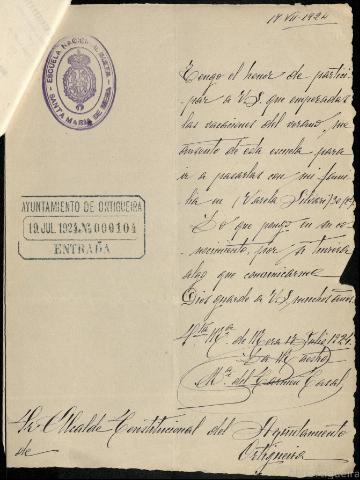 17 VII-1924
ESCUELA NACIONAL MIXTA
SANTA MARIA DE MERA
Tengo el honor de partici-
par a V.S. que empezadas
las vacaciones del verano, me
ausento de esta escuela para
ir a pasarlas con mi fami-
lia en (Varela Silvari)
Lo que pongo en su co-
nocimiento, por si tuviera
algo que comunicarme
Dios guarde a V.S. muchos años.
AYUNTAMIENTO DE ORTIGUEIRA
19 JUL 1924 Nº 000104
ENTRADA
Sta Mª de Mera Julio 1924
La Maestra
Mª del Carmen Casal
Sr Alcalde Constitucional del Ayuntamiento
de Ortigueira